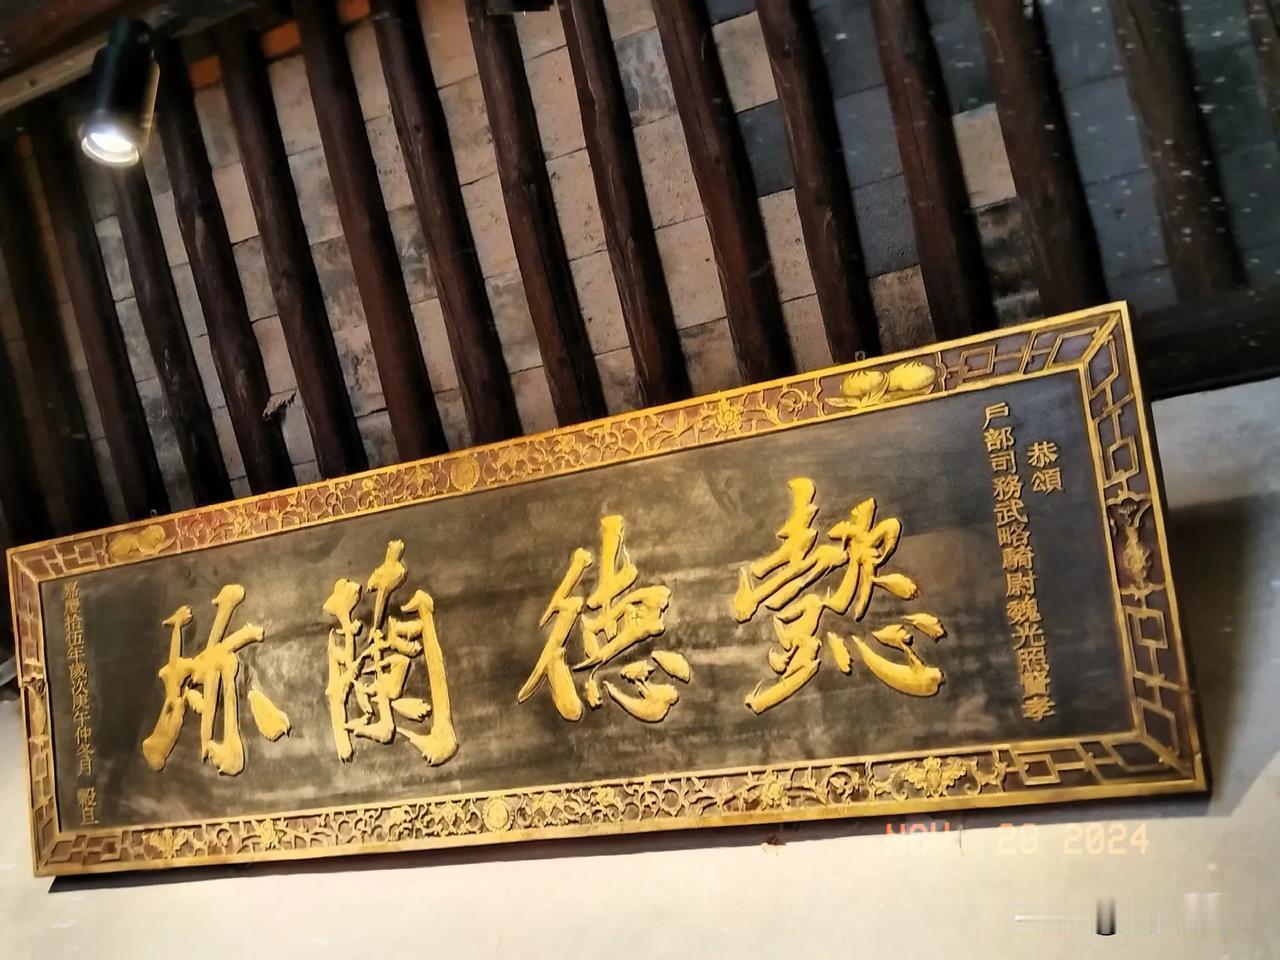 恭頌
戶部司務武略騎尉魏光照賢孝
懿德蘭
嘉慶拾伍年歲次庚午仲冬月 穀旦
NOV 28 2024